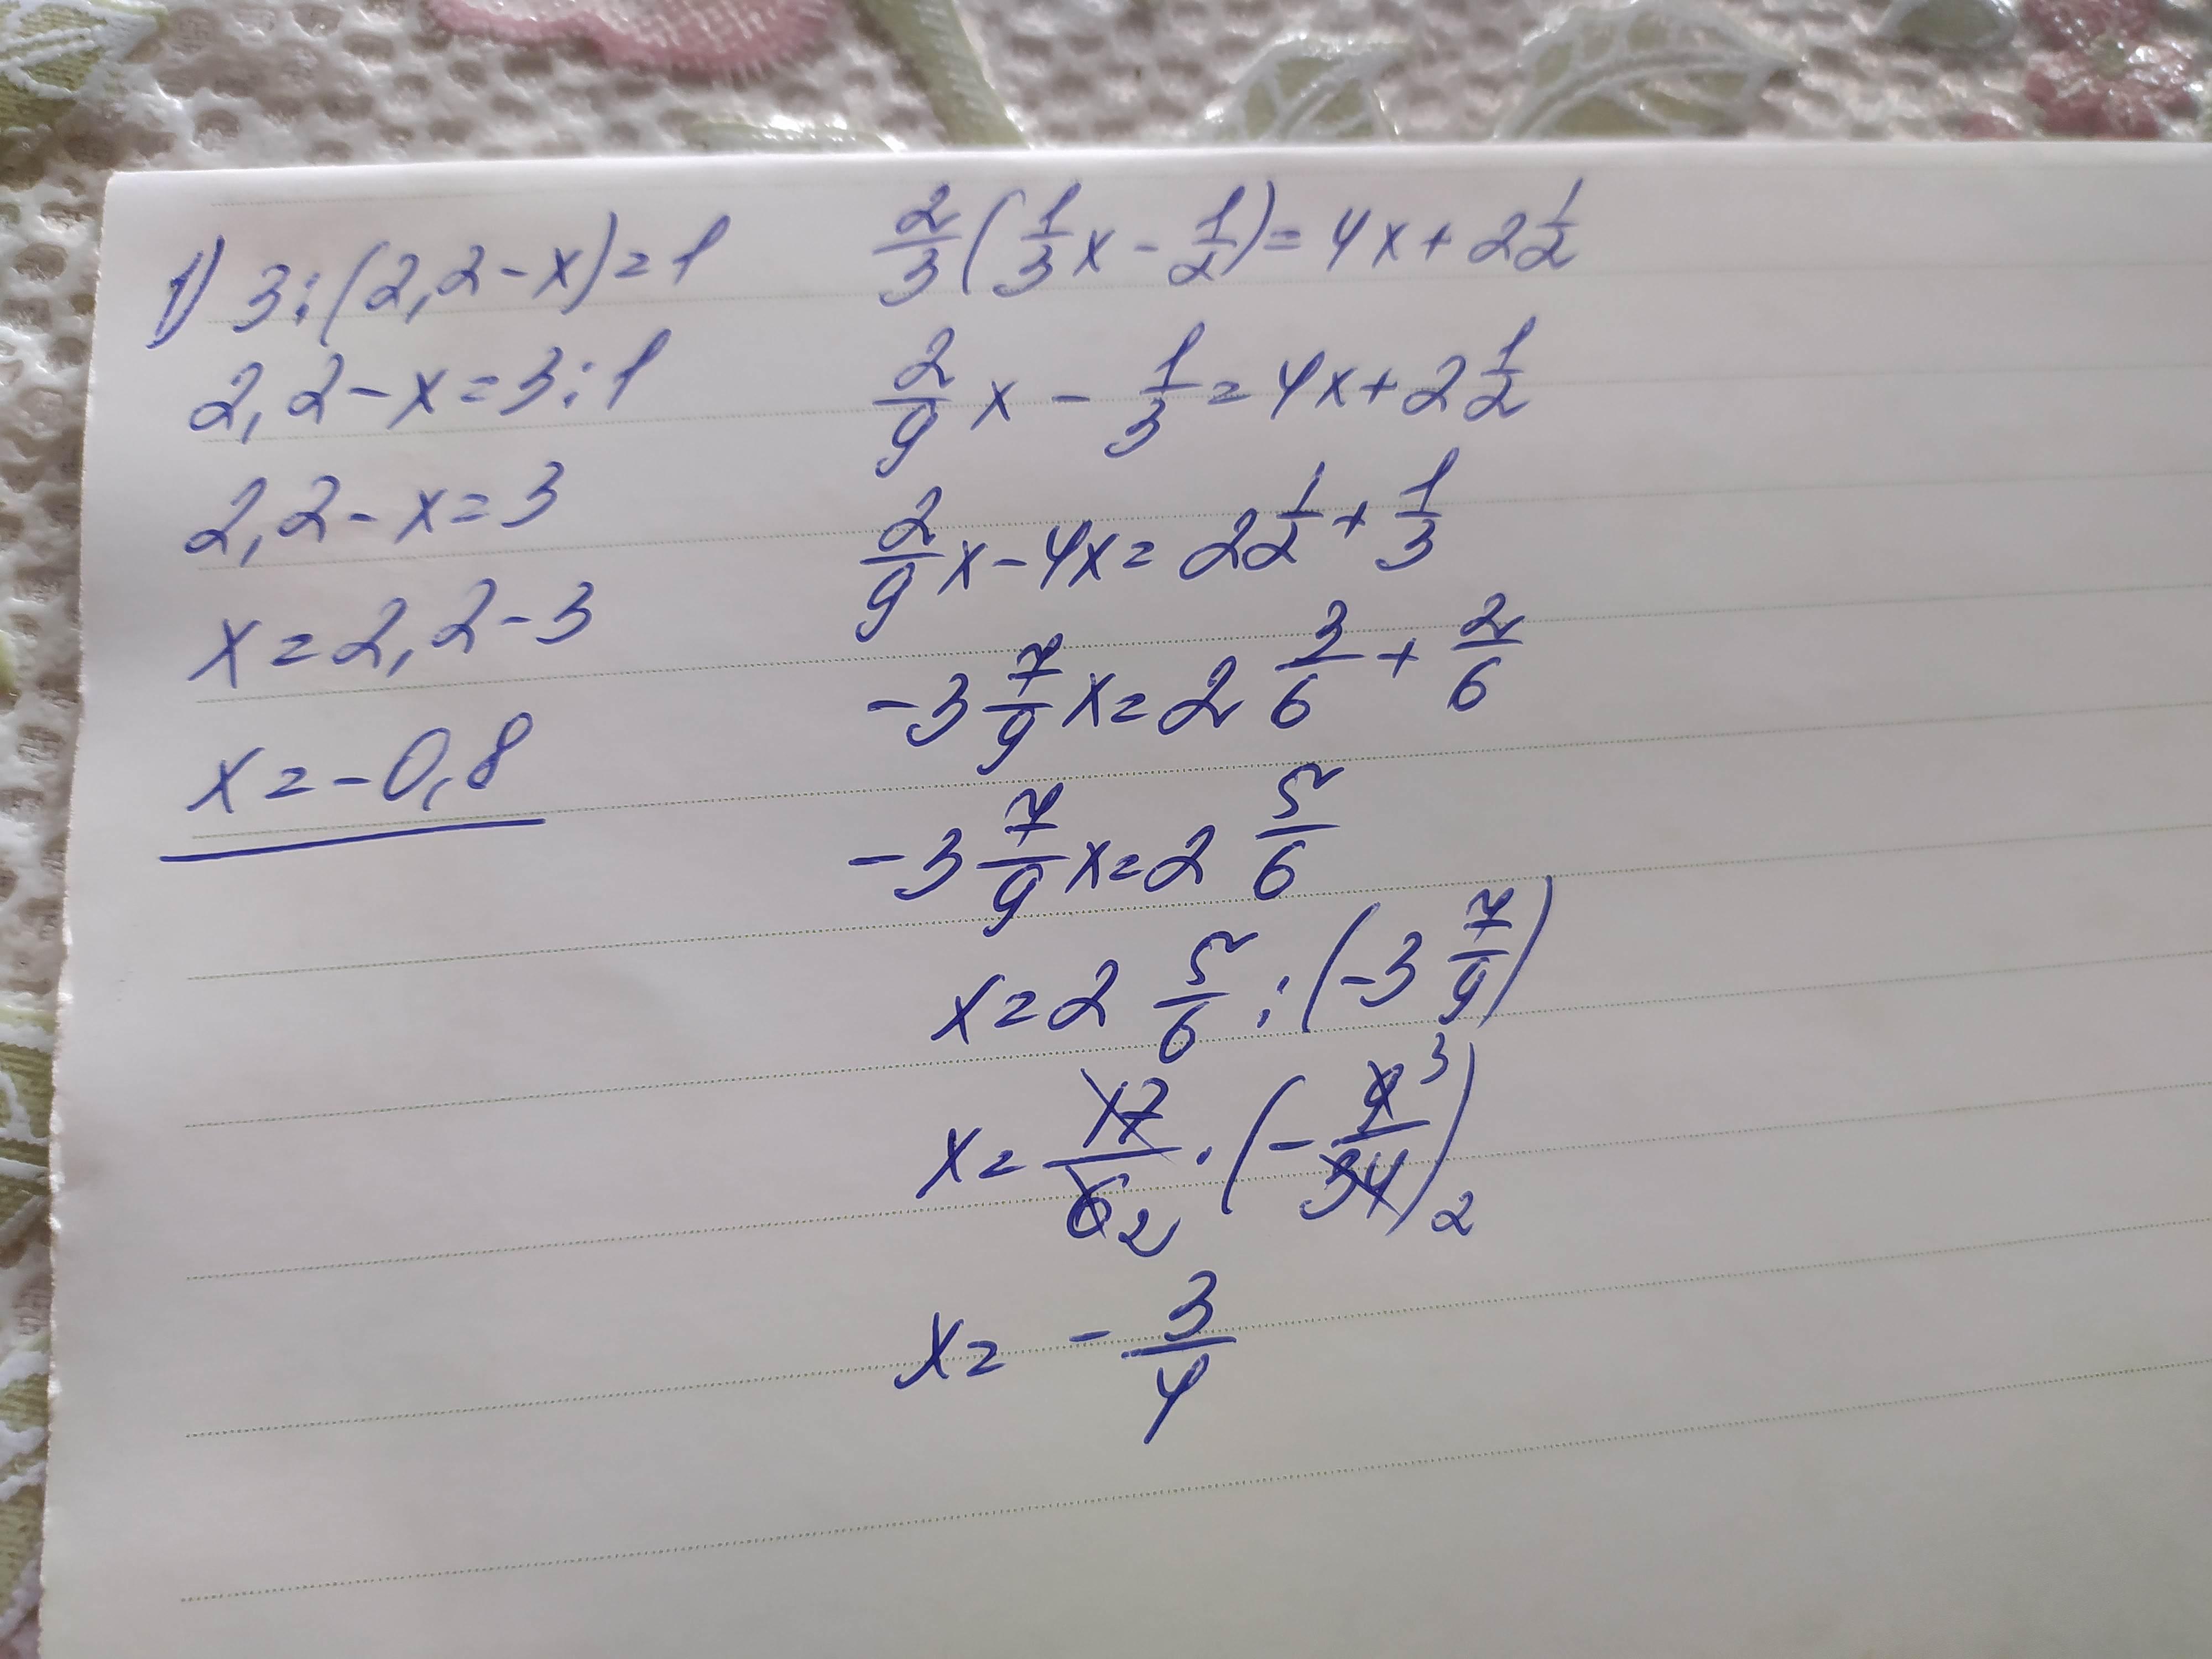 1) 3:(2,2-x)=1
2,2-x=3:1
2,2-x=3
x=2,2-3
x=-0,8
2/3(1/3x-1/2)=4x+2 1/2
2/9x-1/3=4x+2 1/2
2/9x-4x=2 1/2+1/3
-3 7/9x=2 3/6+2/6
-3 7/9x=2 5/6
x=2 5/6:(-3 7/9)
x=17/6 2·(-9 3/34)2
x=-3/4